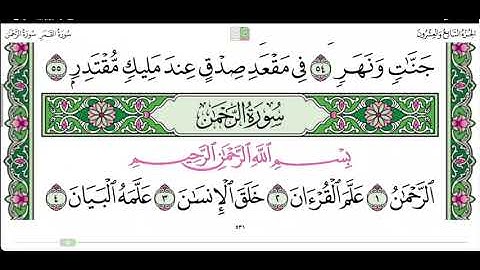 الجزء السابع والعشرون
سورة القمر سورة الرحمن
جَنَّٰتٍ وَنَهَرٍ ٥٤ فِي مَقْعَدِ صِدْقٍ عِندَ مَلِيكٍ مُّقْتَدِرٍۭ ٥٥
سُورَةُ الرَّحْمٰن
بِسْمِ ٱللَّهِ ٱلرَّحْمَٰنِ ٱلرَّحِيمِ
ٱلرَّحْمَٰنُ ١ عَلَّمَ ٱلْقُرْءَانَ ٢ خَلَقَ ٱلْإِنسَٰنَ ٣ عَلَّمَهُ ٱلْبَيَانَ ٤
٥٣١